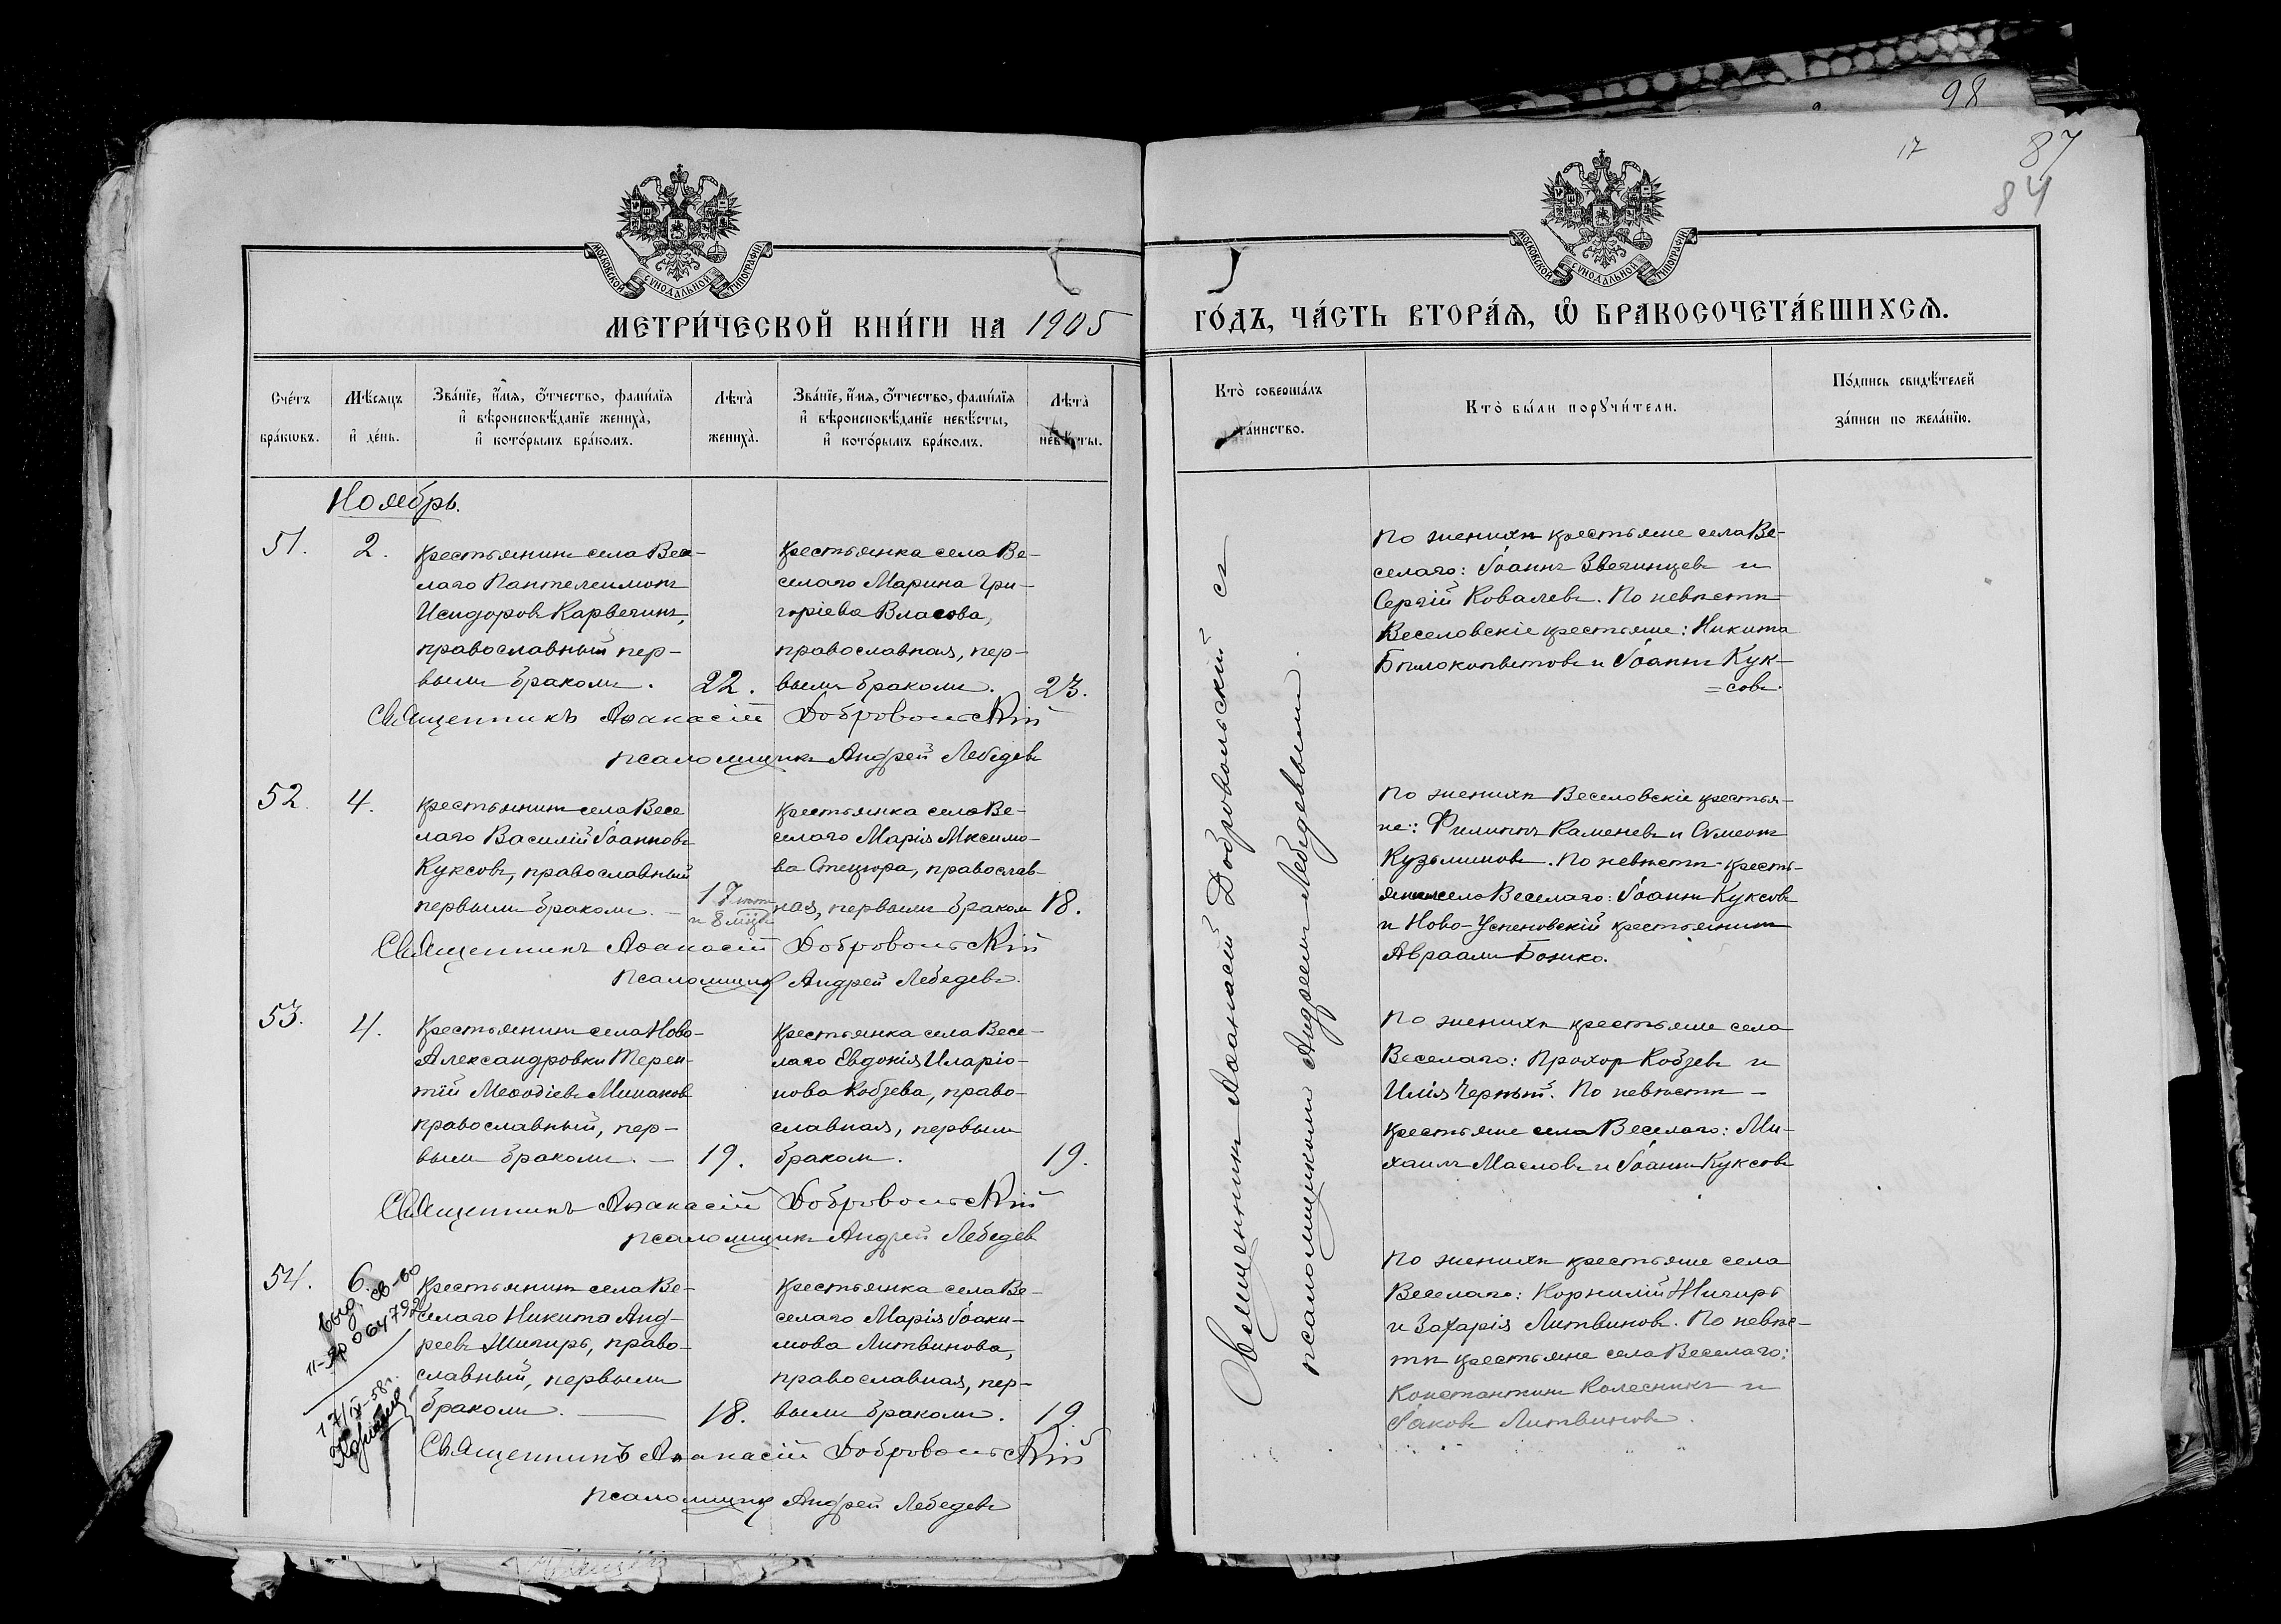 98
17
87
84
МОСКОВСКОЙ СѴНОДАЛЬНОЙ ТИПОГРАФІИ
МОСКОВСКОЙ СѴНОДАЛЬНОЙ ТИПОГРАФІИ
МЕТРИ́ЧЕСКОЙ КНИ́ГИ НА 1905
ГО́ДЪ, ЧА́СТЬ ВТОРА́Ѧ, Ѽ БРАКОСОЧЕТА́ВШИХСѦ.
Сче́тъ бра́кωвъ.
Мѣ́сяцъ и҆ де́нь.
Зва́нїе, и҆́мя, ѻ҆́тчество, фами́лїя
и҆ вѣроисповѣ́данїе жениха̀,
и҆ кото́рымъ бра́комъ.
Лѣ́та̀ жениха̀.
Зва́нїе, и҆́мя, ѻ҆́тчество, фами́лїя
и҆ вѣроисповѣ́данїе невѣ́сты,
и҆ кото́рымъ бра́комъ.
Лѣ́та̀ невѣ́сты.
Кто̀ соверша́лъ та́инство.
Кто̀ бы́ли порꙋчи́тели.
По́дпись свидѣ́телей
за́писи по жела́нїю.
Ноябрь.
51. 2.
Крестьянинъ села Весе-
лаго Пантелеимонъ
Исидоровъ Карвечинъ,
православный пер-
вымъ бракомъ. 22.
Крестьянка села Ве-
селаго Марина Гри-
горіева Власова,
православная, пер-
вымъ бракомъ. 23.
По женихѣ крестьяне села Ве-
селаго: Іоаннъ Звегинцевъ и
Сергій Ковалевъ. По невѣстѣ
Веселовскіе крестьяне: Никита
Бѣлокопытовъ и Іоаннъ Кук-
=совъ.
Священникъ Аѳанасій Добровольскій
псаломщикъ Андрей Лебедевъ
52. 4.
Крестьянинъ села Весе
лаго Василій Іоанновъ
Куксовъ, православный
первымъ бракомъ. — 17 лѣт
и 8 мѣц
Крестьянка села Ве-
селаго Марія Мксимо-
ва Стецюра, православ-
ная, первымъ браком 18.
По женихѣ Веселовскіе крестья-
не: Филиппъ Каменевъ и Сѵмеонъ
Кузьминовъ. По невѣстѣ кресть-
янинъ села Веселаго: Іоаннъ Куксовъ
и Ново-Успеновскій крестьянинъ
Авраамъ Божко.
Священникъ Аѳанасій Добровольскій
Псаломщикъ Андрей Лебедевъ.
53. 4.
Крестьянинъ села Ново-
Александровки Терен-
тій Меѳодіевъ Минаковъ
православный, пер-
вымъ бракомъ. — 19.
Крестьянка села Весе-
лаго Евдокія Иларіо-
нова Кобзева, право-
славная, первымъ
браком. 19.
По женихѣ крестьяне села
Веселаго: Прохоръ Кобзевъ и
Илія Черный. По невѣстѣ —
крестьяне села Веселаго: Ми-
хаилъ Масловъ и Іоаннъ Куксовъ
Священникъ Аѳанасій Добровольскій
псаломщикъ Андрей Лебедев
54. 6.
Крестьянинъ села Ве-
селаго Никита Анд-
реевъ Жигирь, право-
славный, первымъ
бракомъ. — 18.
Крестьянка села Ве-
селаго Марія Іоаки-
мова Литвинова,
православная, пер-
вымъ бракомъ. 19.
По женихѣ крестьяне села
Веселаго: Корнилій Жигирь
и Захарія Литвиновъ. По невѣс-
тѣ крестьяне села Веселаго:
Константинъ Колесникъ и
Іаковъ Литвиновъ.
Священникъ Аѳанасій Добровольскій
псаломщикъ Андрей Лебедевъ
выд. св-во
064792
17/IV-58г.
Священникъ Аѳанасій Добровольскій съ
псаломщикомъ Андреемъ Лебедевымъ.